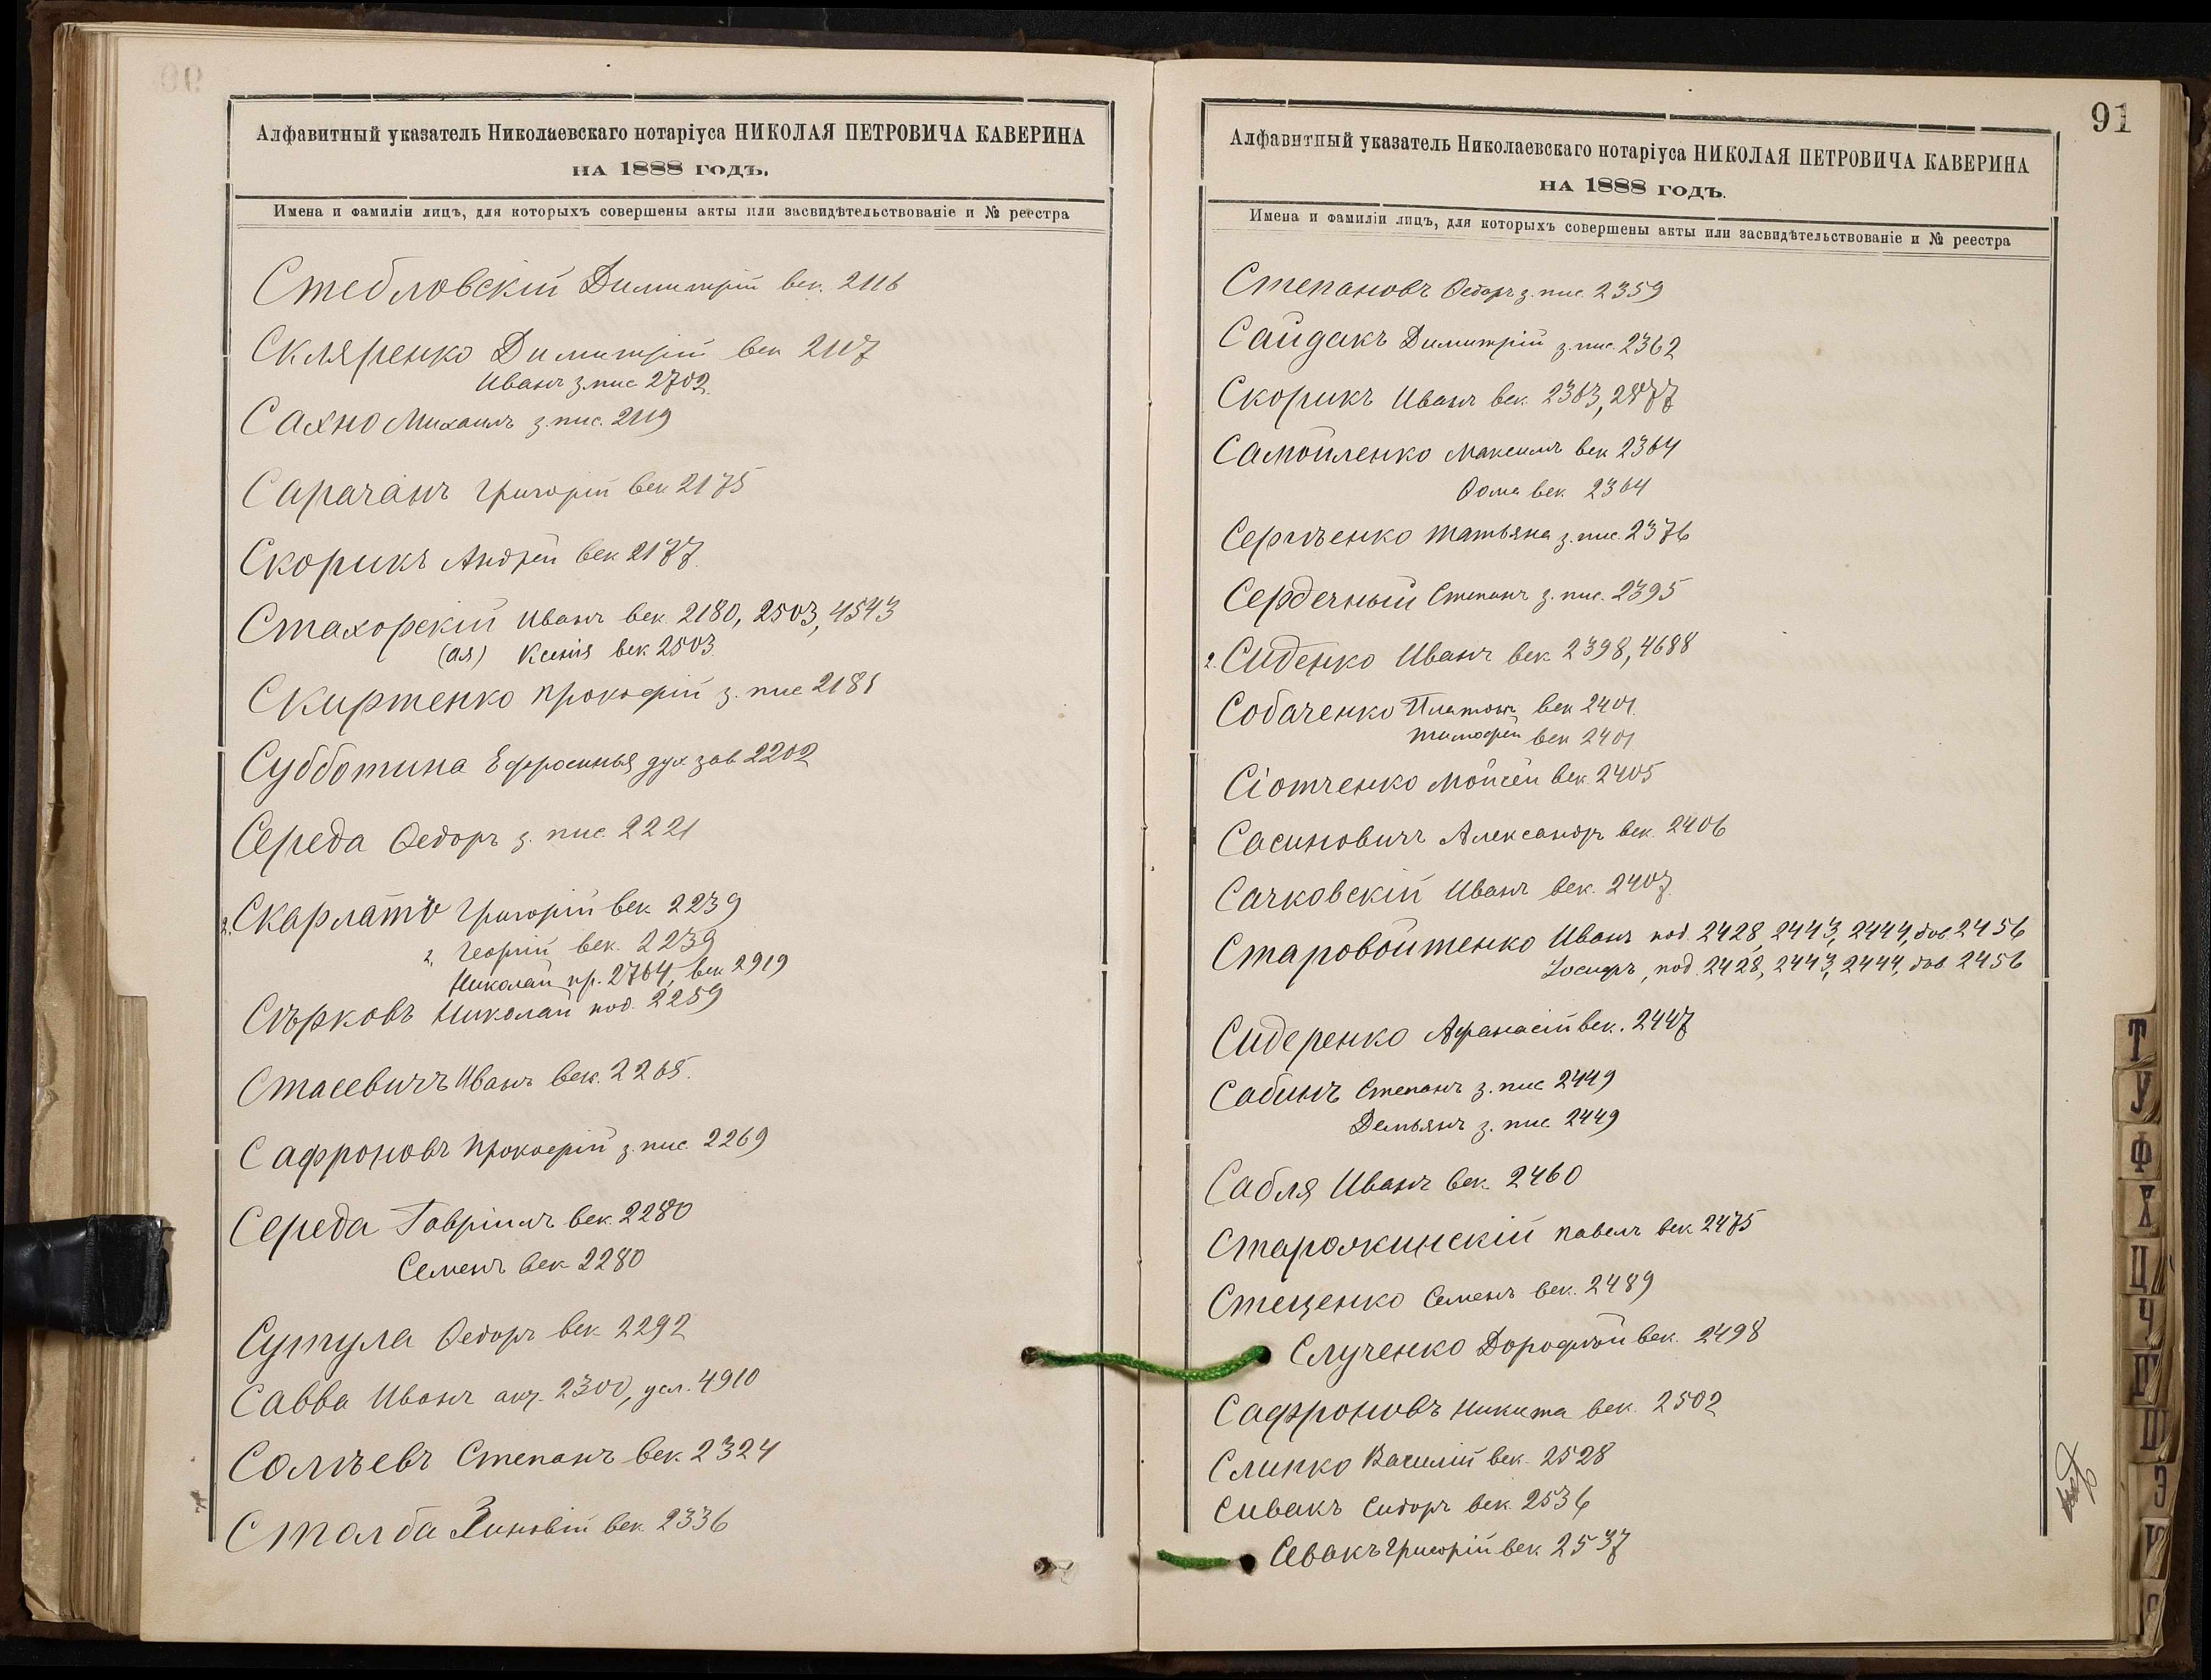 Алфавитный указатель Николаевскаго нотаріуса НИКОЛАЯ ПЕТРОВИЧА КАВЕРИНА
НА 1888 ГОДЪ.
Имена и фамиліи лицъ, для которыхъ совершены акты или засвидѣтельствованіе и № реестра
Стебловскій Димитрій век. 2116
Скляренко Димитрій век 2117
Иванъ з. пис 2702
Сахно Михаилъ з. пис. 2119
Сарачанъ Григорій век 2175
Скорикъ Андрей век 2177
Стахорскій Иванъ век. 2180, 2503, 4543
(ая) Ксенія век 2503
Скиртенко Прокофій з. пис 2181
Субботина Ефросинья дух зав 2202
Середа Ѳедоръ з. пис 2221
2. Скарлато Григорій век 2239
2. Георгій век. 2239
Николай пр. 2764, век 2919
Сѣрковъ Николай под. 2259
Стасевичъ Иванъ век. 2265.
Сафроновъ Прокофій з. пис. 2269
Середа Гавріилъ век. 2280
Семенъ век 2280
Сутула Ѳедоръ век 2292
Савва Иванъ 2300, усл. 4910
Солѣевъ Степанъ век. 2324
Сталба Зиновій век. 2336
91
Алфавитный указатель Николаевскаго нотаріуса НИКОЛАЯ ПЕТРОВИЧА КАВЕРИНА
НА 1888 ГОДЪ.
Имена и фамиліи лицъ, для которыхъ совершены акты или засвидѣтельствованіе и № реестра
Степановъ Ѳедоръ з. пис. 2359
Сайдакъ Димитрій з. пис. 2362
Скорикъ Иванъ век. 2363, 2877
Самойленко Максимъ век 2364
Ѳома век 2364
Сергѣенко Татьяна з. пис. 2376
Сердечный Степанъ з. пис. 2395
2. Сиденко Иванъ век 2398, 4688
Собаченко Платонъ век 2401
Тимофей век 2401
Сіотченко Мойсей век 2405
Сасиновичъ Александръ век. 2406
Сачковскій Иванъ век. 2407
Старовойтенко Иванъ под. 2428, 2443, 2444, дов. 2456
Іосифъ, под. 2428, 2443, 2444, дов. 2456
Сидеренко Афанасій век. 2447
Сабинъ Степанъ з. пис 2449
Демьянъ з. пис 2449
Сабля Иванъ век. 2460
Старожинскій Павелъ век 2475
Стеценко Семенъ век. 2489
Слученко Дорофѣй век. 2498
Сафроновъ Никита век. 2502
Слипко Василій век. 2528
Сивакъ Сидоръ век. 2536
Сивакъ Григорій век. 2537
Т
У
Ф
Х
Ц
Ч
Ш
Щ
Э